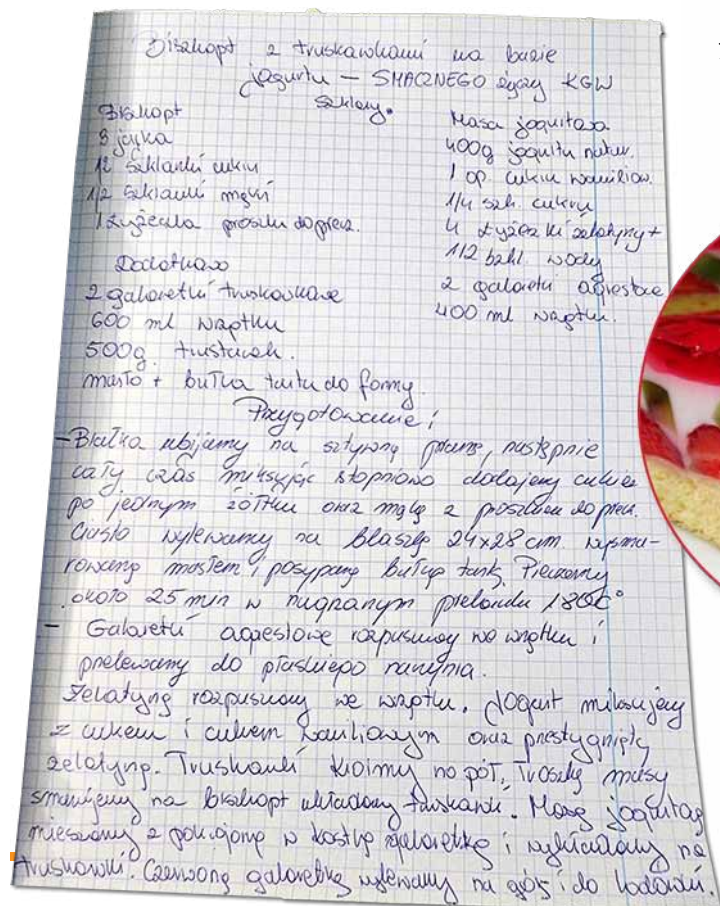 Biszkopt z truskawkami na bazie
jogurtu – SMACZNEGO życzy KGW
Szklary.
Biszkopt
3 jajka
1/2 szklanki cukru
1/2 szklanki mąki
1 łyżeczka proszku do piecz.
Dodatkowo
2 galaretki truskawkowe
600 ml wrzątku
500g. truskawek.
masło + bułka tarta do formy.
Masa jogurtowa
400g jogurtu natur.
1 op. cukru waniliow.
1/4 szk. cukru
4 łyżeczki żelatyny +
1/2 szkl. wody
2 galaretki agrestowe
400 ml wrzątku.
Przygotowanie:
– Białka ubijamy na sztywną pianę, następnie
cały czas miksując stopniowo dodajemy cukier
po jednym żółtku oraz mąkę z proszkiem do piecz.
Ciasto wylewamy na blaszkę 24x28 cm. wysma-
rowaną masłem i posypaną bułką tartą. Pieczemy
około 25 min w nagrzanym piekarniku 180C°
– Galaretki agrestowe rozpuszczamy we wrzątku i
przelewamy do płaskiego naczynia.
Żelatynę rozpuszczamy we wrzątku. Jogurt miksujemy
z cukrem i cukrem waniliowym oraz przestygniętą
żelatyną. Truskawki kroimy na pół. Troszkę masy
smarujemy na biszkopt układamy truskawki. Masę jogurtową
mieszamy z pokrojoną w kostkę galaretką i wykładamy na
truskawki. Czerwoną galaretkę wylewamy na górę i do lodówki.